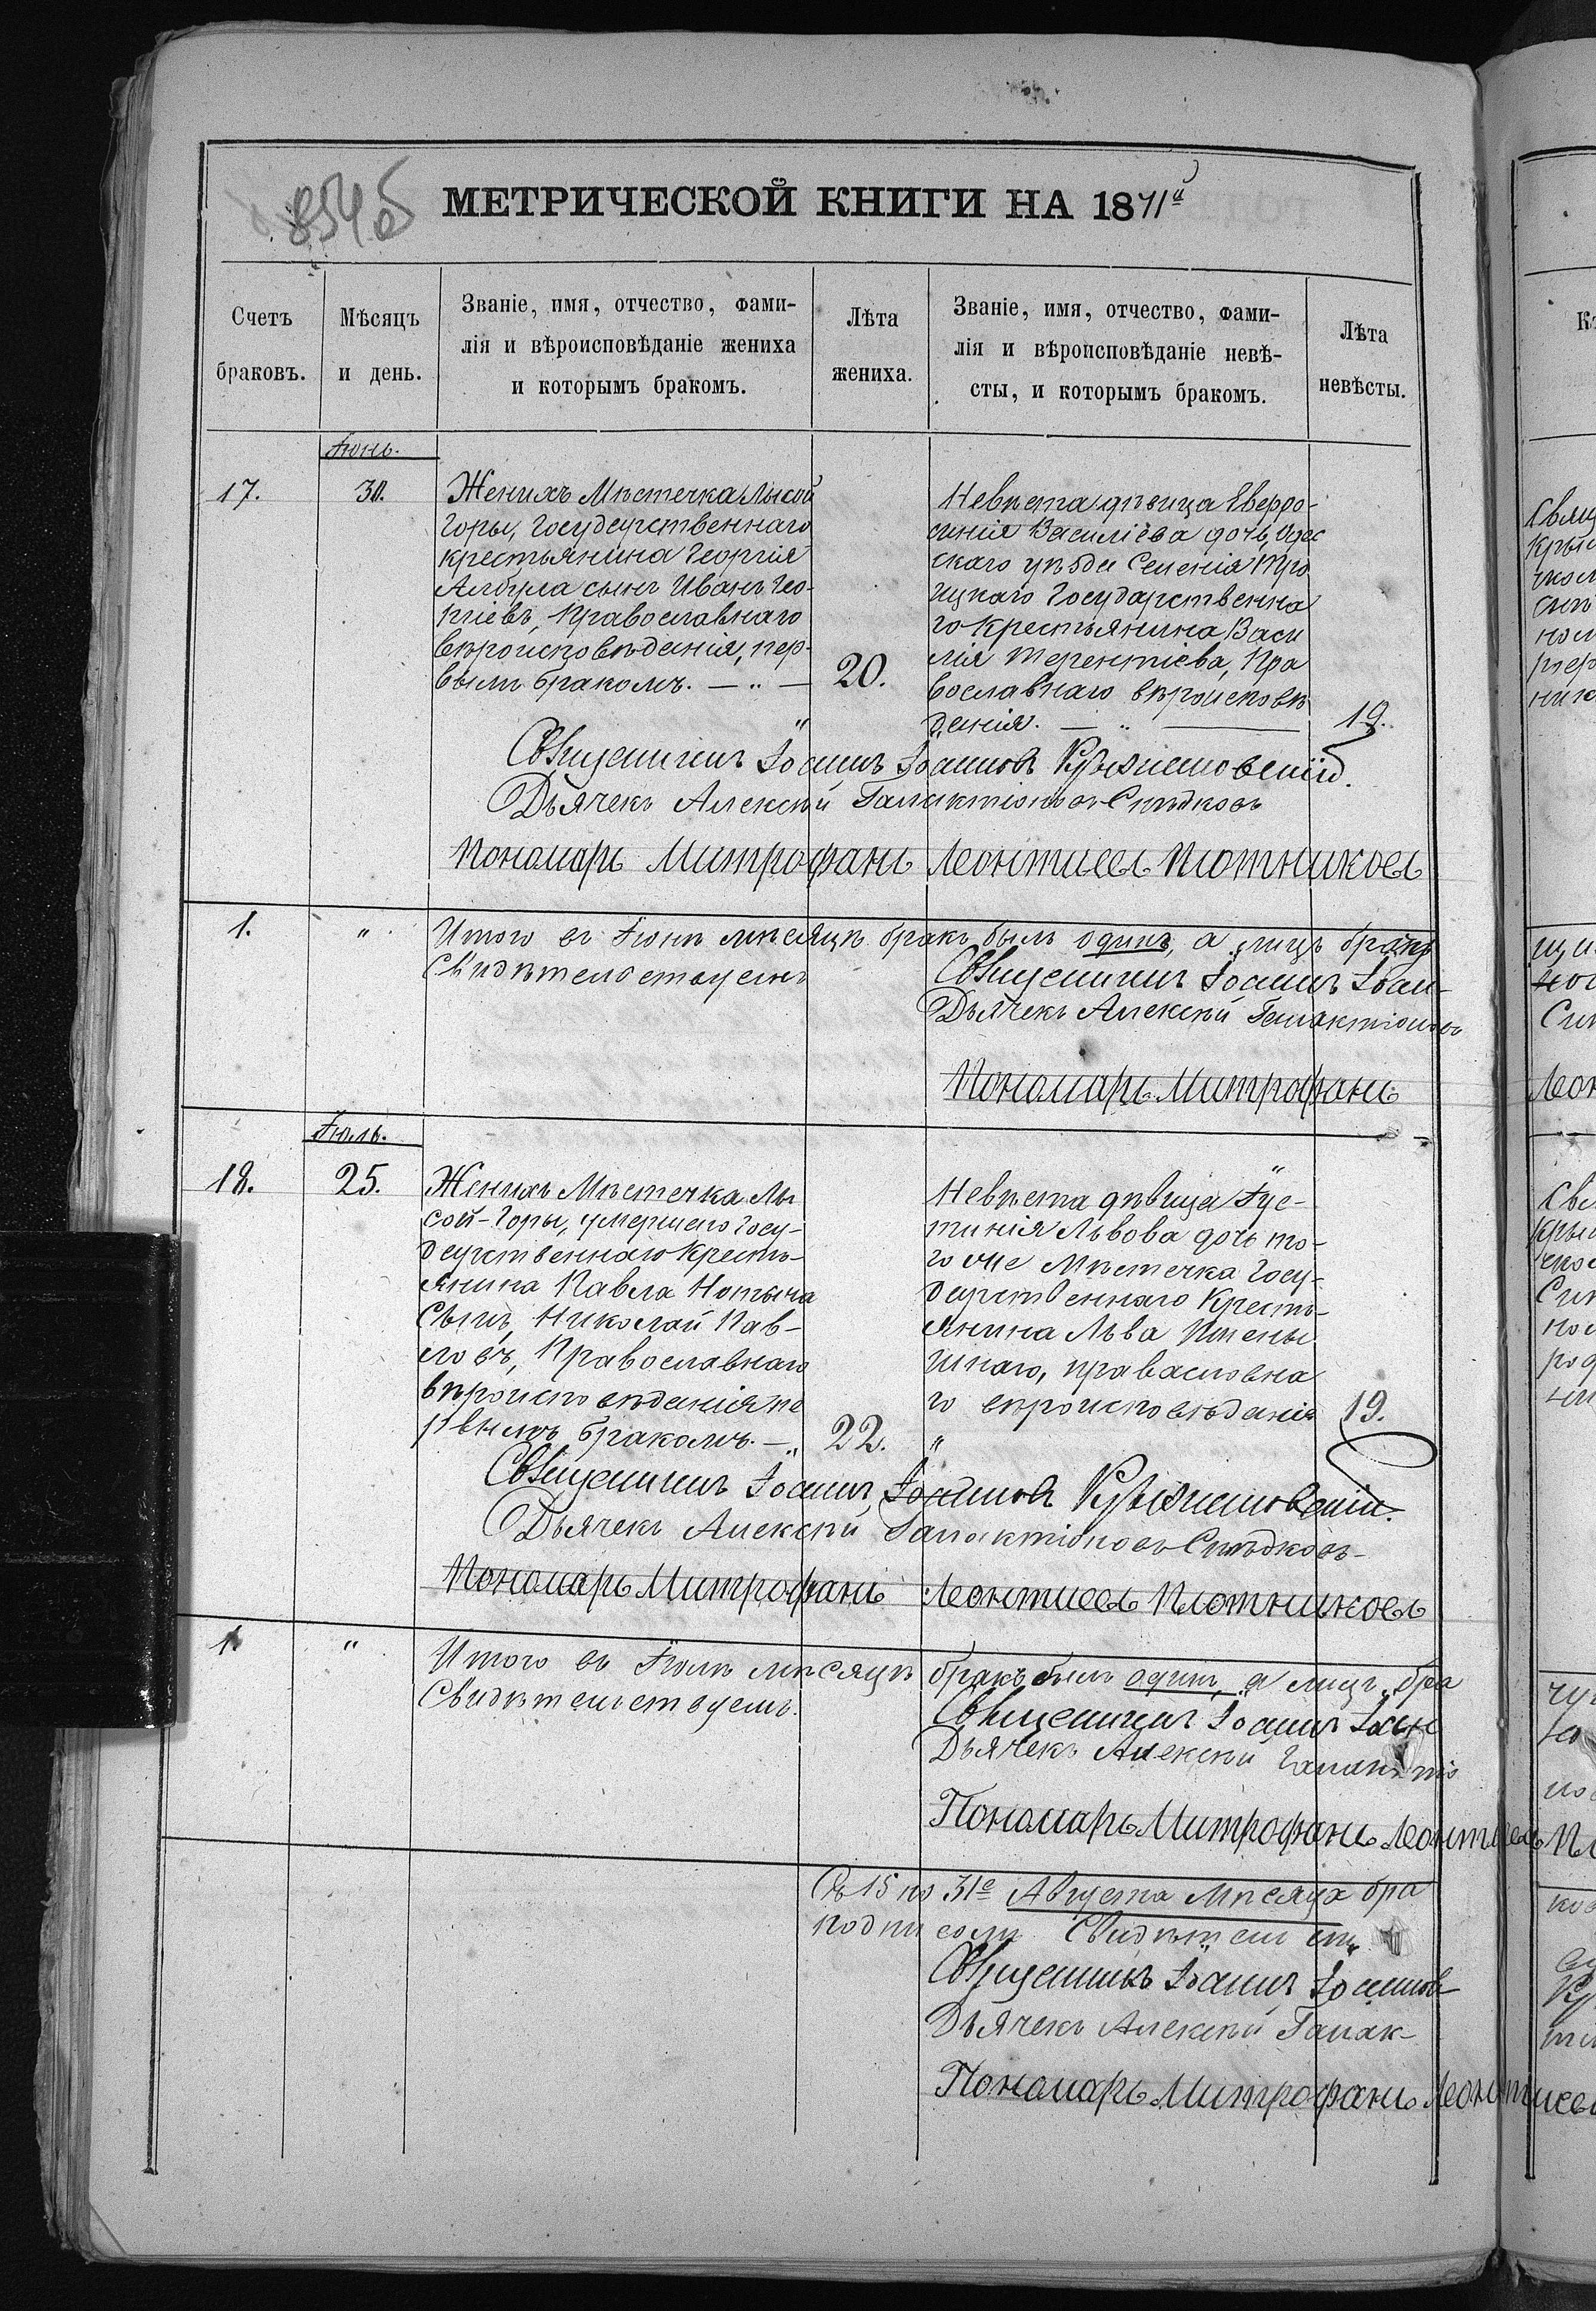 854 об
МЕТРИЧЕСКОЙ КНИГИ НА 1871й
Счетъ
браковъ.
Мѣсяцъ
и день.
Званіе, имя, отчество, фами-
лія и вѣроисповѣданіе жениха
и которымъ бракомъ.
Лѣта
жениха.
Званіе, имя, отчество, фами-
лія и вѣроисповѣданіе невѣ-
сты, и которымъ бракомъ.
Лѣта
невѣсты.
Іюнь.
17.
30.
Женихъ Мѣстечка Лысой
Горы, Государственнаго
крестьянина Георгія
Албула сынъ Иванъ Гео-
ргіевъ, Православнаго
вѣроисповѣданія, пер-
вымъ бракомъ. — „ —
20.
Невѣста дѣвица Евфро-
синія Василіева дочь, Одес
скаго уѣзда Селенія Тро
ицкаго Государственна
го крестьянина Васи
лія Терентіева, Пра
вославнаго вѣроисповѣ
данія. — „ —
19.
Священникъ Іоаннъ Іоанновъ Крыжановскій.
Дьячекъ Алексѣй Галактіоновъ Снѣдковъ
Пономарь Митрофанъ Леонтиевъ Плотниковъ
1.
„
Итого въ Іюнѣ мѣсяцѣ бракъ былъ одинъ, а лицъ брако
Свидѣтельствуемъ
Священникъ Іоаннъ Іоан-
Дьячекъ Алексѣй Галактіоновъ
Пономарь Митрофанъ
Іюль.
18.
25.
Женихъ Мѣстечка Лы
сой-Горы, умершаго Госу-
дарственнаго кресть-
янина Павла Нотыча
Сынъ, Николай Пав-
ловъ, Православнаго
вѣроисповѣданія пе
рвымъ бракомъ. — „
22.
Невѣста дѣвица Іус-
тинія Львова дочь то-
го же Мѣстечка Госу-
дарственнаго Кресть-
янина Льва Пшены
шнаго, правасловна
го вѣроисповѣданія
19.
„
Священникъ Іоаннъ Іоанновъ Крыжановскій.
Дьячекъ Алексѣй Галактіоновъ Снѣдковъ
Пономарь Митрофанъ Леонтиевъ Плотниковъ
1.
„
Итого въ Іюлѣ мѣсяцѣ бракъ былъ одинъ, а лицъ бра
Свидѣтельствуемъ.
Священникъ Іоаннъ Іоан
Дьячекъ Алексѣй Галактіо
Пономарь Митрофанъ Леонтиевъ
Съ 15 по 31е Августа Мѣсяца бра
Свидѣтел
Священникъ Іоаннъ Іоаннов
Дьячекъ Алексѣй Галак-
Пономарь Митрофанъ Леонтиевъ